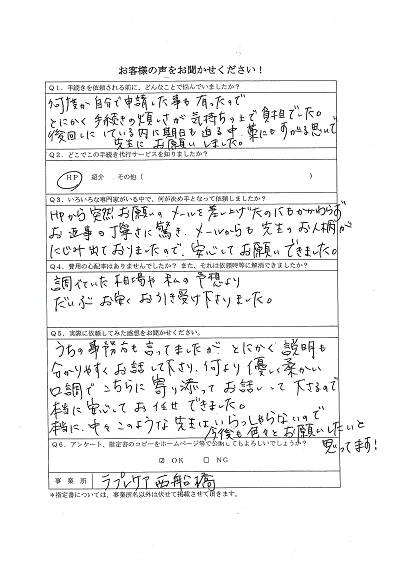 お客様の声をお聞かせください！
Q1．手続きを依頼される前に、どんなことで悩んでいましたか？
何度か自分で申請した事も有ったので
とにかく手続きの煩しさが気持ちの上で負担でした。
後回しにしている内に期日も迫る中、藁にもすがる思いで
先生にお願いしました。
Q2．どこでこの手続き代行サービスを知りましたか？
HP 紹介 その他（ ）
Q3．いろいろな専門家がいる中で、何が決め手となって依頼しましたか？
HPから突然お願いのメールを差し上げたのにもかかわらず
お返事の丁寧さに驚き、メールからも先生のお人柄が
にじみ出ておりましたので、安心してお願いできました。
Q4．費用の心配事はありませんでしたか？また、それは依頼時等に解消できましたか？
調べていた相場や私の予想より
だいぶお安くお引き受け下さりました。
Q5．実際に依頼してみた感想をお聞かせください。
うちの事務方も言ってましたが、とにかく説明も
分かりやすくお話して下さり、何より優しく柔かい
口調でこちらに寄り添ってお話して下さるので
本当に安心してお任せできました。
本当に、中々このような先生はいらっしゃらないので
今後も何々とお願いしたいと
思ってます！
Q6．アンケート、指定書のコピーをホームページ等で公開してもよろしいでしょうか？
☑ OK □ NG
事業所 ラプレケア西船橋
＊指定書については、事業所名以外は伏せて掲載させて頂きます。